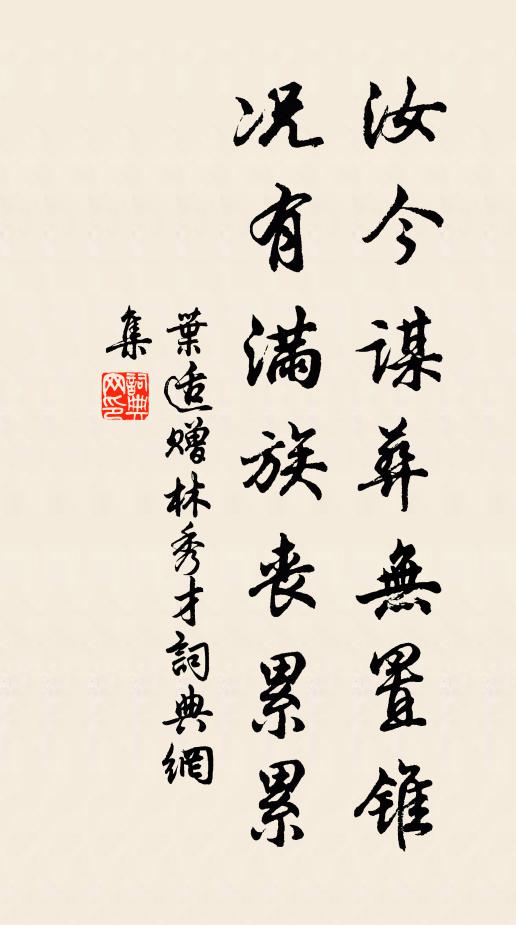 汝今謀葬無置錐
况有滿族喪累累
葉適贈林秀才詞典網
集
詞典
网印